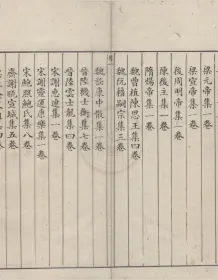 梁元帝集一卷
梁宣帝集一卷
後周明帝集一卷
陳後主集一卷
隋煬帝集一卷
魏曹植陳思王集四卷
魏阮籍嗣宗集三卷
魏嵇康中散集一卷
晉陸機士衡集七卷
晉陸雲士龍集四卷
宋謝惠連集一卷
宋謝靈運康樂集一卷
宋鮑照鮑氏集八卷
齊謝朓宣城集五卷